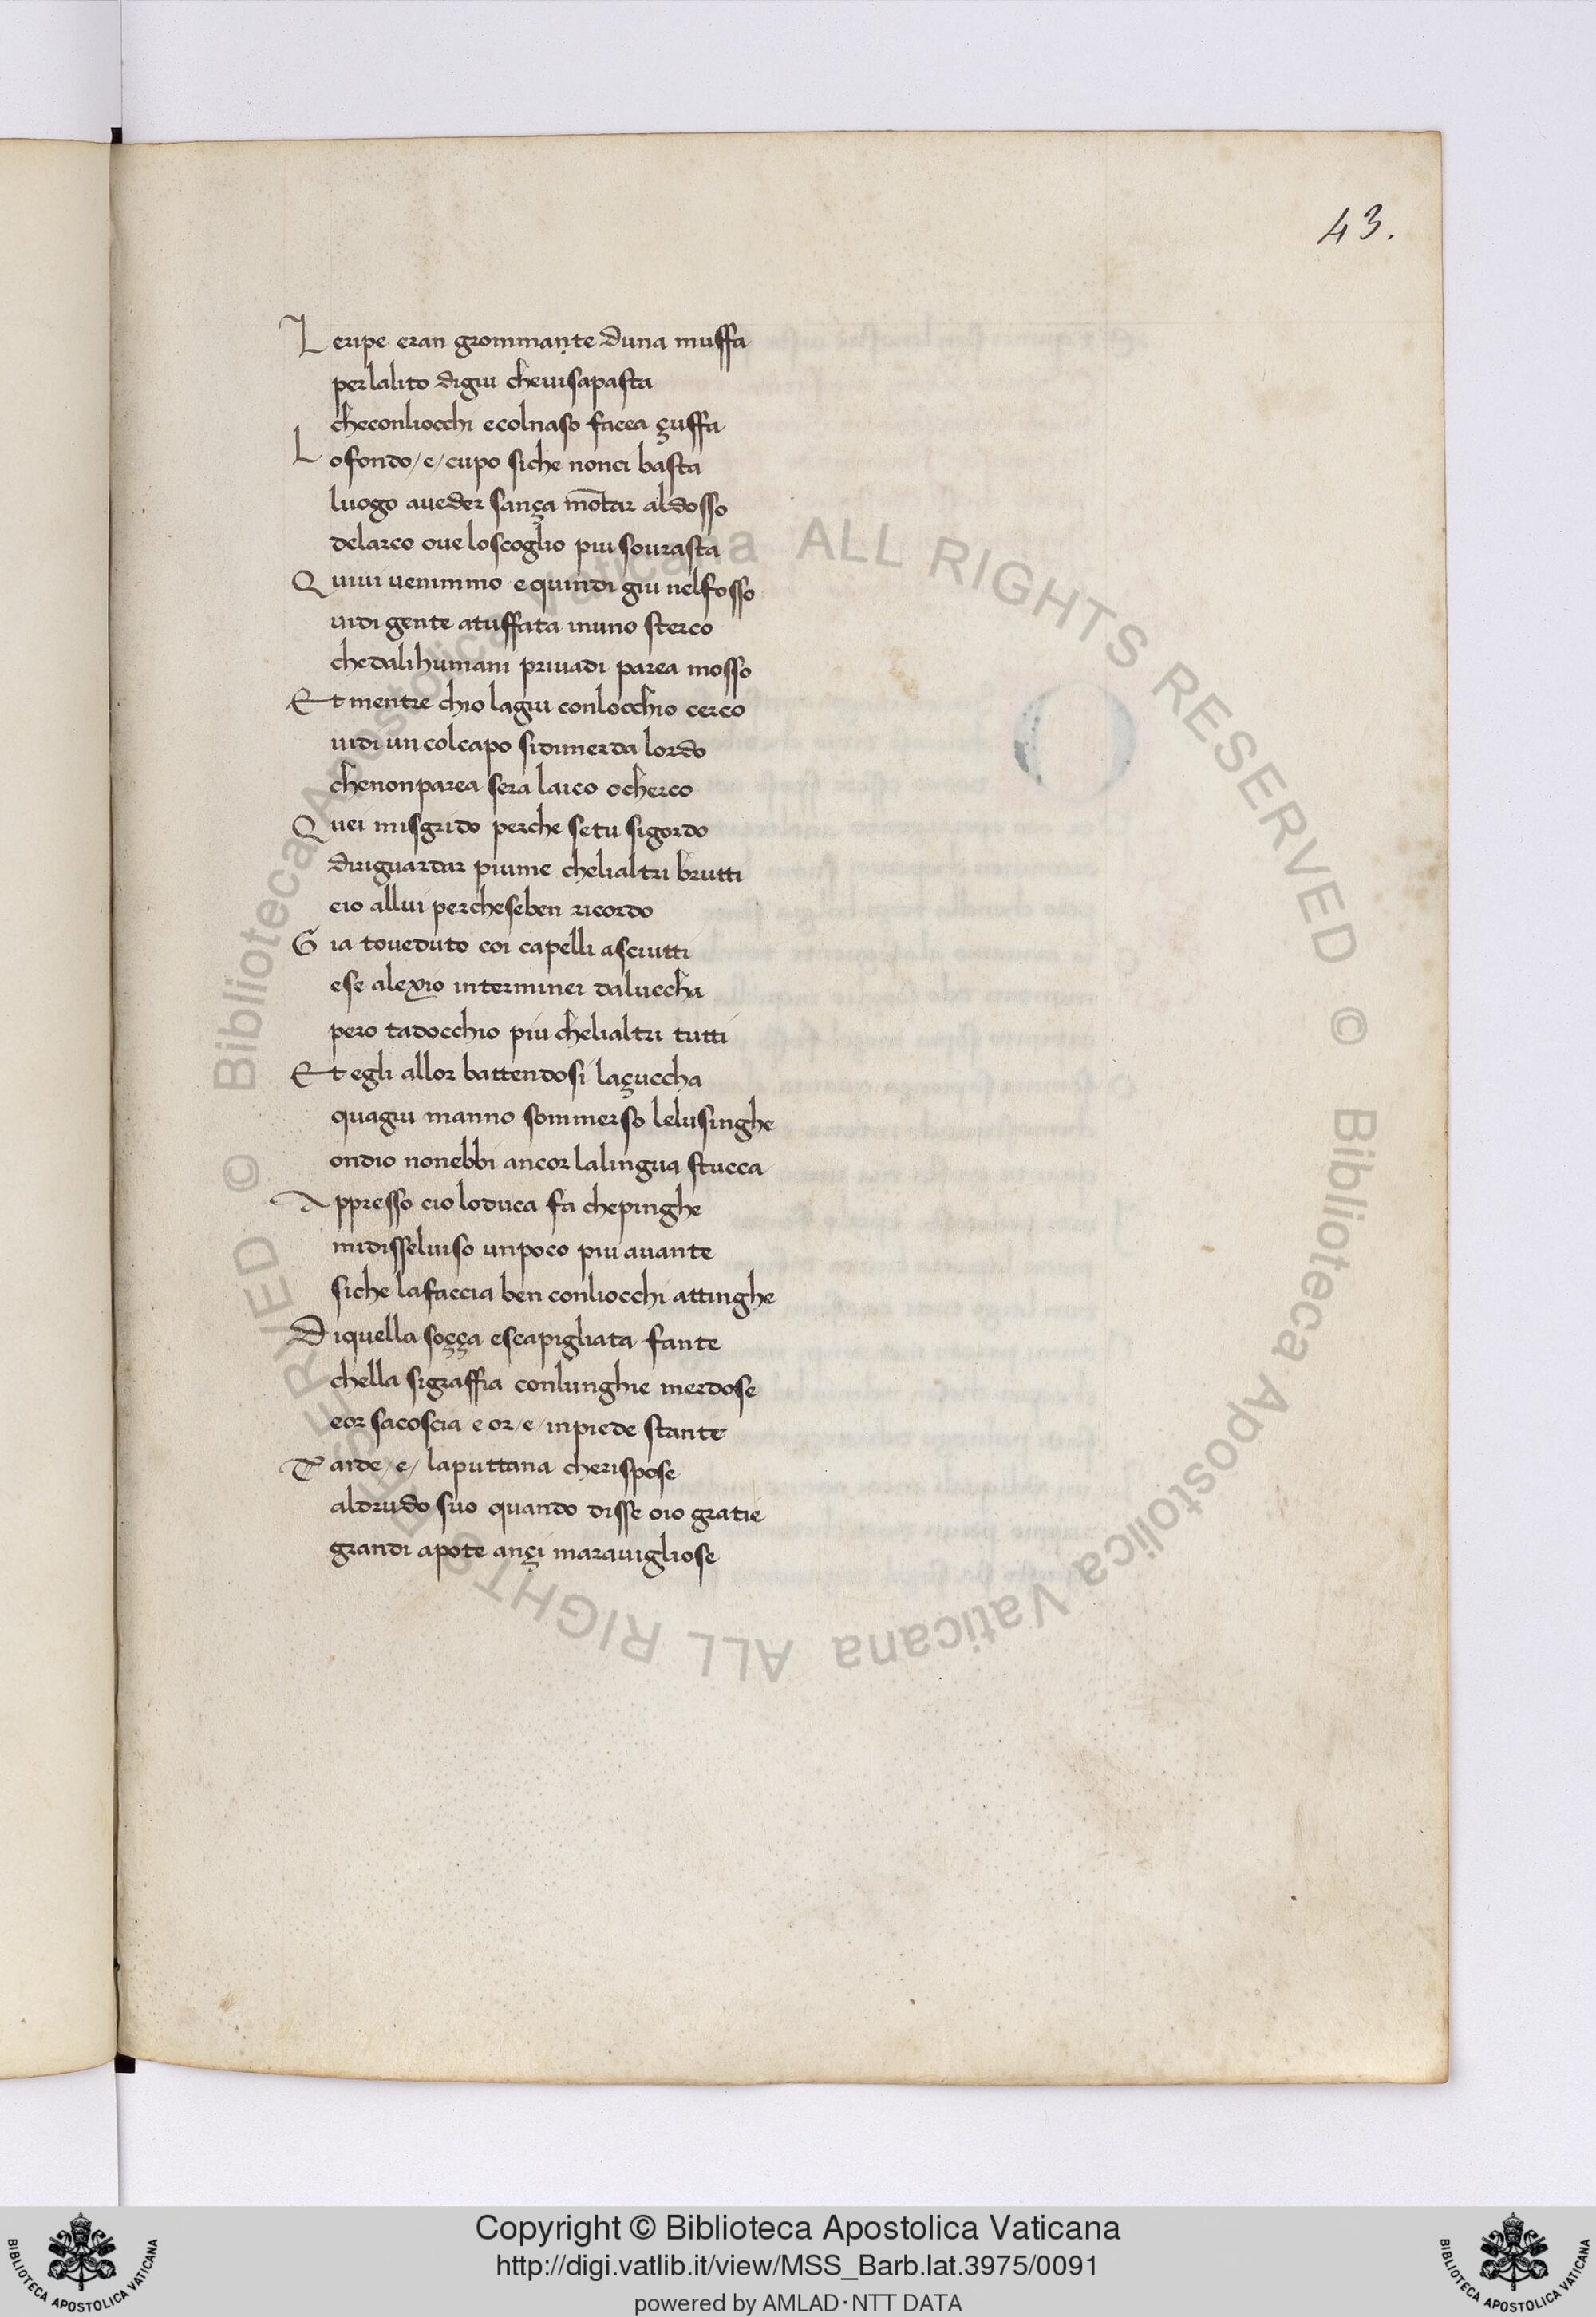 43.
L eripe eran grommante duna muffa
perlalito digiu cheuisapasta
checonliocchi ecolnaso facea çuffa
L ofondo/e/cupo siche nonci basta
luogo aueder sança mo̅tar aldosso
delarco oue loscoglio piu sourasta
Q uiui uenimmo equindi giu nelfosso
uidi gente atuffata inuno sterco
chedalihumani priuadi parea mosso
E t mentre chio lagiu conlocchio cerco
uidi un colcapo sidimerda lordo
chenonparea sera laico ocherco
Q uei misgrido perche setu sigordo
diriguardar piume chelialtri brutti
eio allui percheseben ricordo
G ia toueduto coi capelli asciutti
ese alexio interminei daluccha
pero tadocchio piu chelialtri tutti
E t egli allor battendosi laçuccha
quagiu manno sommerso lelusinghe
ondio nonebbi ancor lalingua stucca
A ppresso cio loduca fa chepinghe
midisseluiso unpoco piu auante
siche lafaccia ben conliocchi attinghe
D iquella soçça escapigliata fante
chella sigraffia conlunghie merdose
eor sacoscia eor/e/inpiede stante
T aide/e/ laputtana cherispose
aldrudo suo quando disse oio gratie
grandi apote ançi marauigliose
© Biblioteca Apostolica Vaticana ALL RIGHTS RESERVED © Biblioteca Apostolica Vaticana ALL RIGHTS RESERVED
Copyright © Biblioteca Apostolica Vaticana
http://digi.vatlib.it/view/MSS_Barb.lat.3975/0091
powered by AMLAD·NTT DATA
BIBLIOTECA APOSTOLICA VATICANA
BIBLIOTECA APOSTOLICA VATICANA